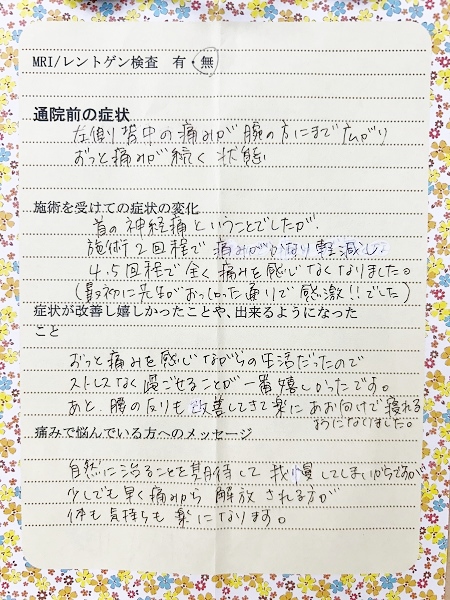 MRI/レントゲン検査　有・無
通院前の症状
左側背中の痛みが腕の方にまで広がり
ずっと痛みが続く状態
施術を受けての症状の変化
首の神経痛ということでしたが、
施術2回程で痛みがかなり軽減し
4.5回程で全く痛みを感じなくなりました。
(最初に先生がおっしゃった通りで感激!!でした)
症状が改善し嬉しかったことや、出来るようになった
こと
ずっと痛みを感じながらの生活だったので
ストレスなく過ごせることが一番嬉しかったです。
あと、腰の反りも改善してきて楽にあお向けで寝れる
ようになりました。
痛みで悩んでいる方へのメッセージ
自然に治ることを期待して我慢してしまいがちですが
少しでも早く痛みから解放される方が
体も気持ちも楽になります。